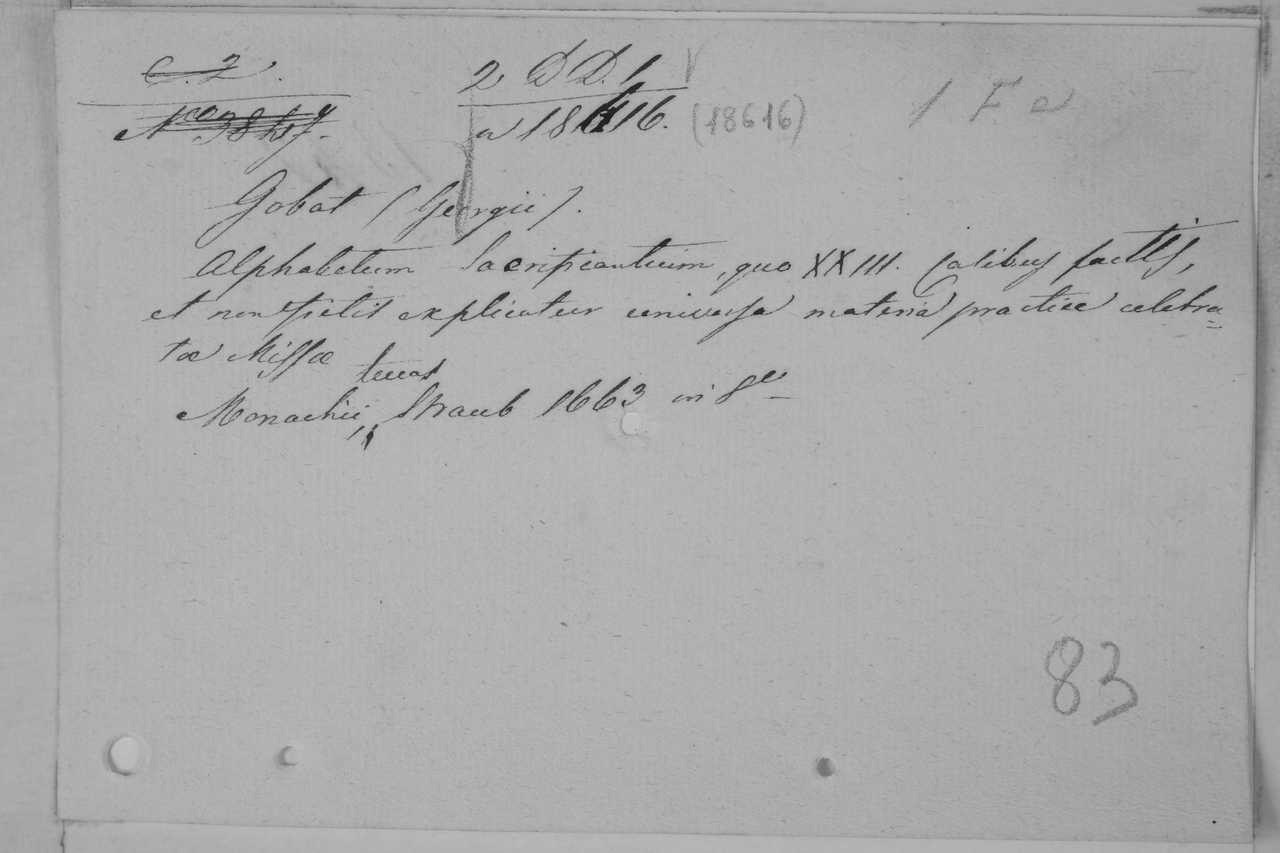 C. 2. 2 DD. 1 1 F e
a 18616. (18616)
Gobat (Georgii).
Alphabetum Sacrificantium, quo XXIII. Casibus factis,
et non fictis explicatur universa materia practice celebra=
tæ Missæ
Monachii, Lucas Straub 1663 in 8º
83